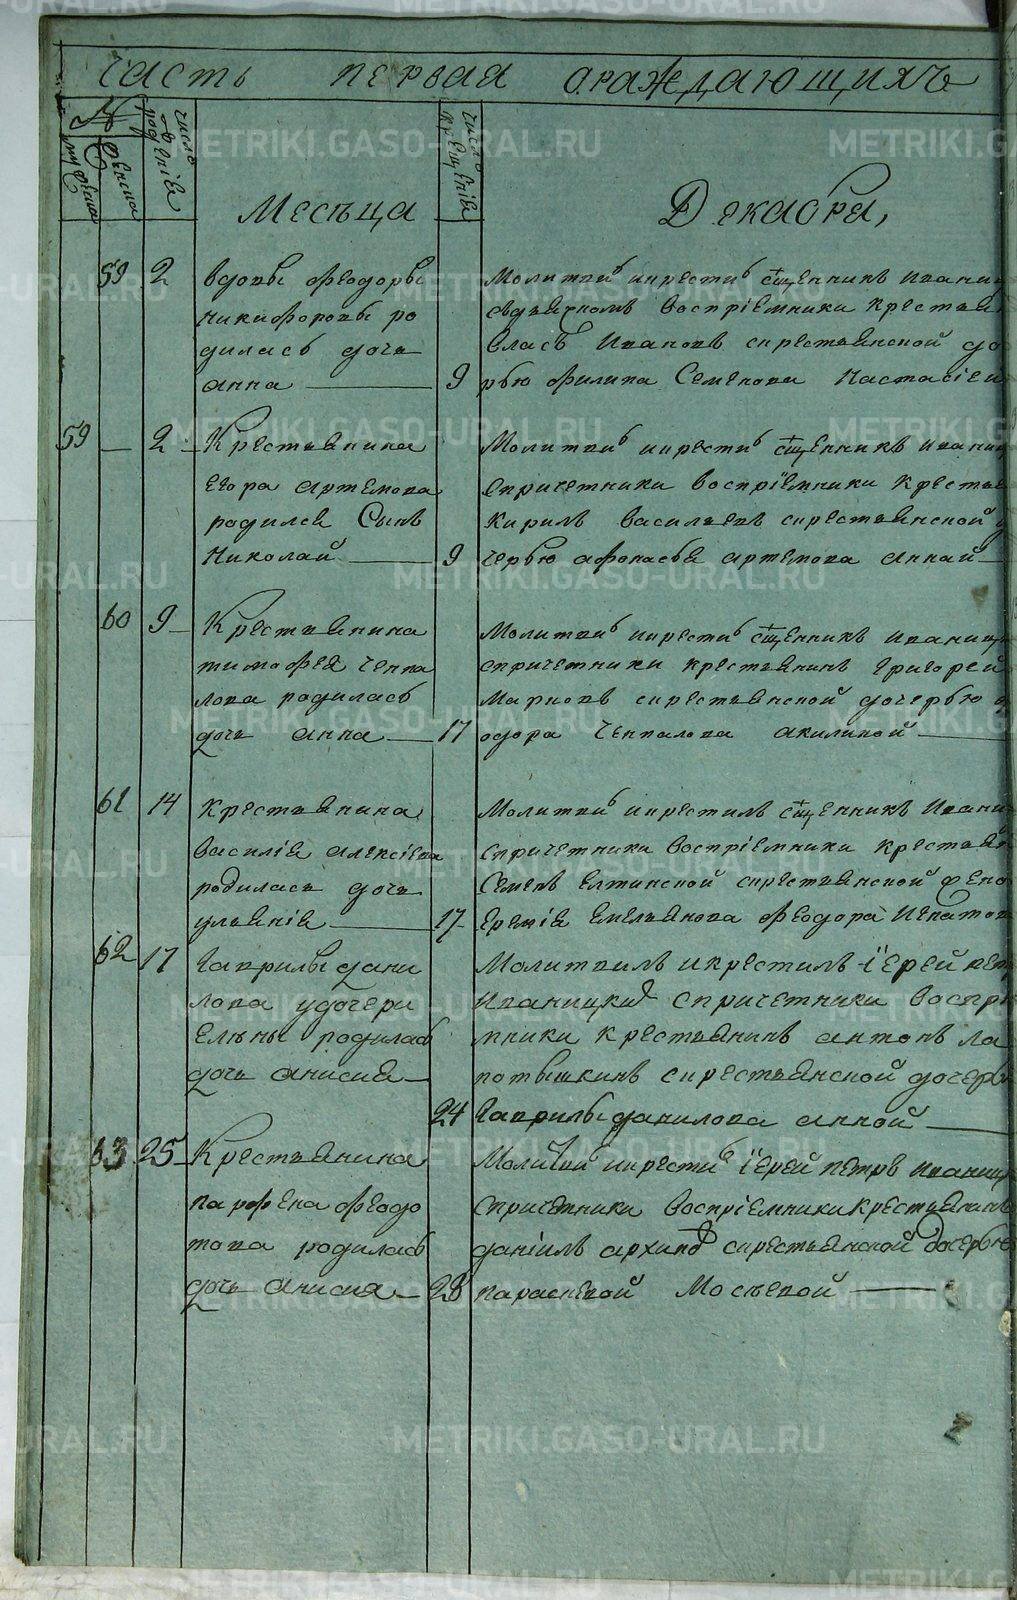 часть первая ораждающихъ
№
мужеска
женска
число рожденія
Месѣца
число крещенія
Декабря,
59 2 вдовы Феодоры
Никифоровы ро
дилась дочь
анна
Молитвов икрести сщенникъ
восприемники
Власъ Ивановъ скрестьянской до
9 рью Филипа Семенова Настасіеи
59 — 2 Крестьянина
Егора артемова
радилсе Сынъ
Николай
Молитвов икрести сщенникъ
спричетники воспріемники
Кирилъ василиевъ скрестьянской
9 черью афонасья артемова аннай
60 9 Крестьянина
тимофея чепка
лова радилась
дочь анна
Молитвов икрести сщенникъ
спричетники крестьянинъ Григорей
Марковъ скрестьянской дочерью
17 одора Чепкалова акилиной
61 14 крестьянина
василіе алексіева
родилась дочь
ульяніе
Молитвов икрестилъ сщенникъ
спричетники воспріемники
Семенъ Елтинской скрестьянской
17 Еремія Емельянова Феодора
62 17 Гаврилы дани
лова удочери
Елены родилась
дочь анисия
Молитвилъ икрестилъ іерей
Иваницкий спричетники воспри
мники крестьянинъ антонъ ла
потышкинъ скрестьянской дочерью
24 Гаврилы данилова анной
63 25 Крестьянина
парфена Феодо
това родилась
дочь анисия
Молитвов икрести іерей петръ
спричетники воспріемники крестьянинъ
даніилъ архипов скрестьянской дочерью
28 параскевой Мосѣевой
METRIKI.GASO-URAL.RU